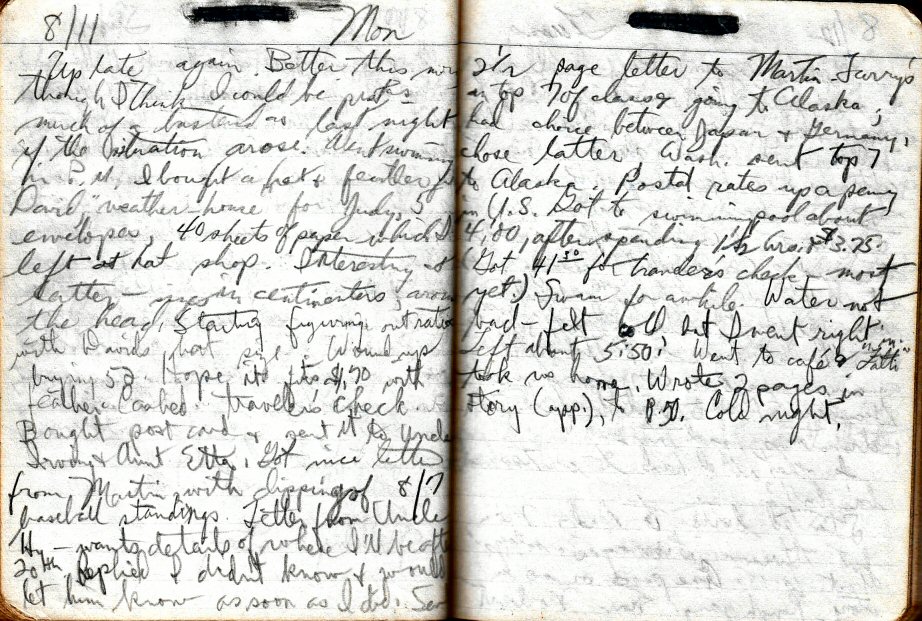 8/11 Mon
Up late again. Better this
though I think I could be
much of a bastard as last night
if the situation arose. Went swimming
in P.M. I bought a hat & feather for
David, weather-house for Judy, 5
envelopes, 40 sheets of paper which I
left at hat shop. Interesting
latter — in centimeters around
the head. Starting figuring out ratio
with David's hat size. Wound up
buying 58. Hope it fits. 4.70 with
feather. Cashed traveler's check
Bought post card & sent it to Uncle
Irving & Aunt Etta. Got nice letter
from Martin, with clipping of 8/7
baseball standings. Letter from Uncle
Hy — wants details of where I'll be after
20th. Replied I didn't know & would
let him know as soon as I did. Sent
2 1/2 page letter to Martin.
in top 7 of classes going to Alaska;
had choice between Japan & Germany,
chose latter. Wash. sent top 7
to Alaska. Postal rates up a penny
in U.S. Got to swimmingpool about
4:00, after spending 1 1/2 hrs. & $3.75
(Got 41 50 for traveler's check — most
yet.) Swam for awhile. Water not
bad — felt cold, but I went right in.
Left about 5:50. Went to café &
took us home. Wrote 2 pages in
story (app.), to Cold night.